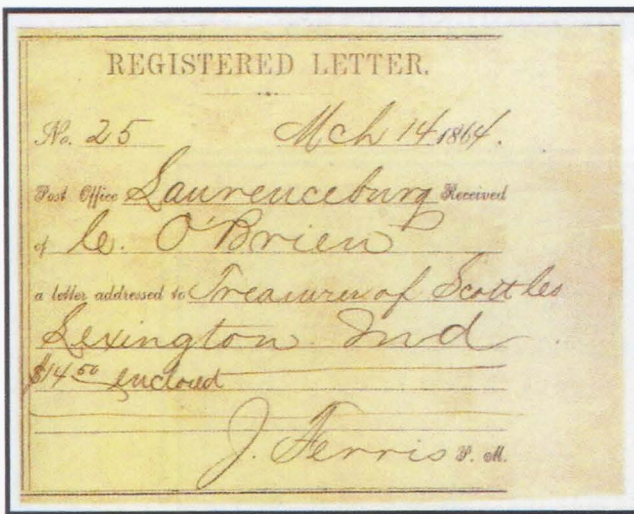 REGISTERED LETTER.
No. 25 Mch 14 1864.
Post Office Laurenceburg Received
of C. O'Brien
a letter addressed to Treasurer of Scott Co
Lexington Ind
$14.50 enclosed
J. Ferris P. M.